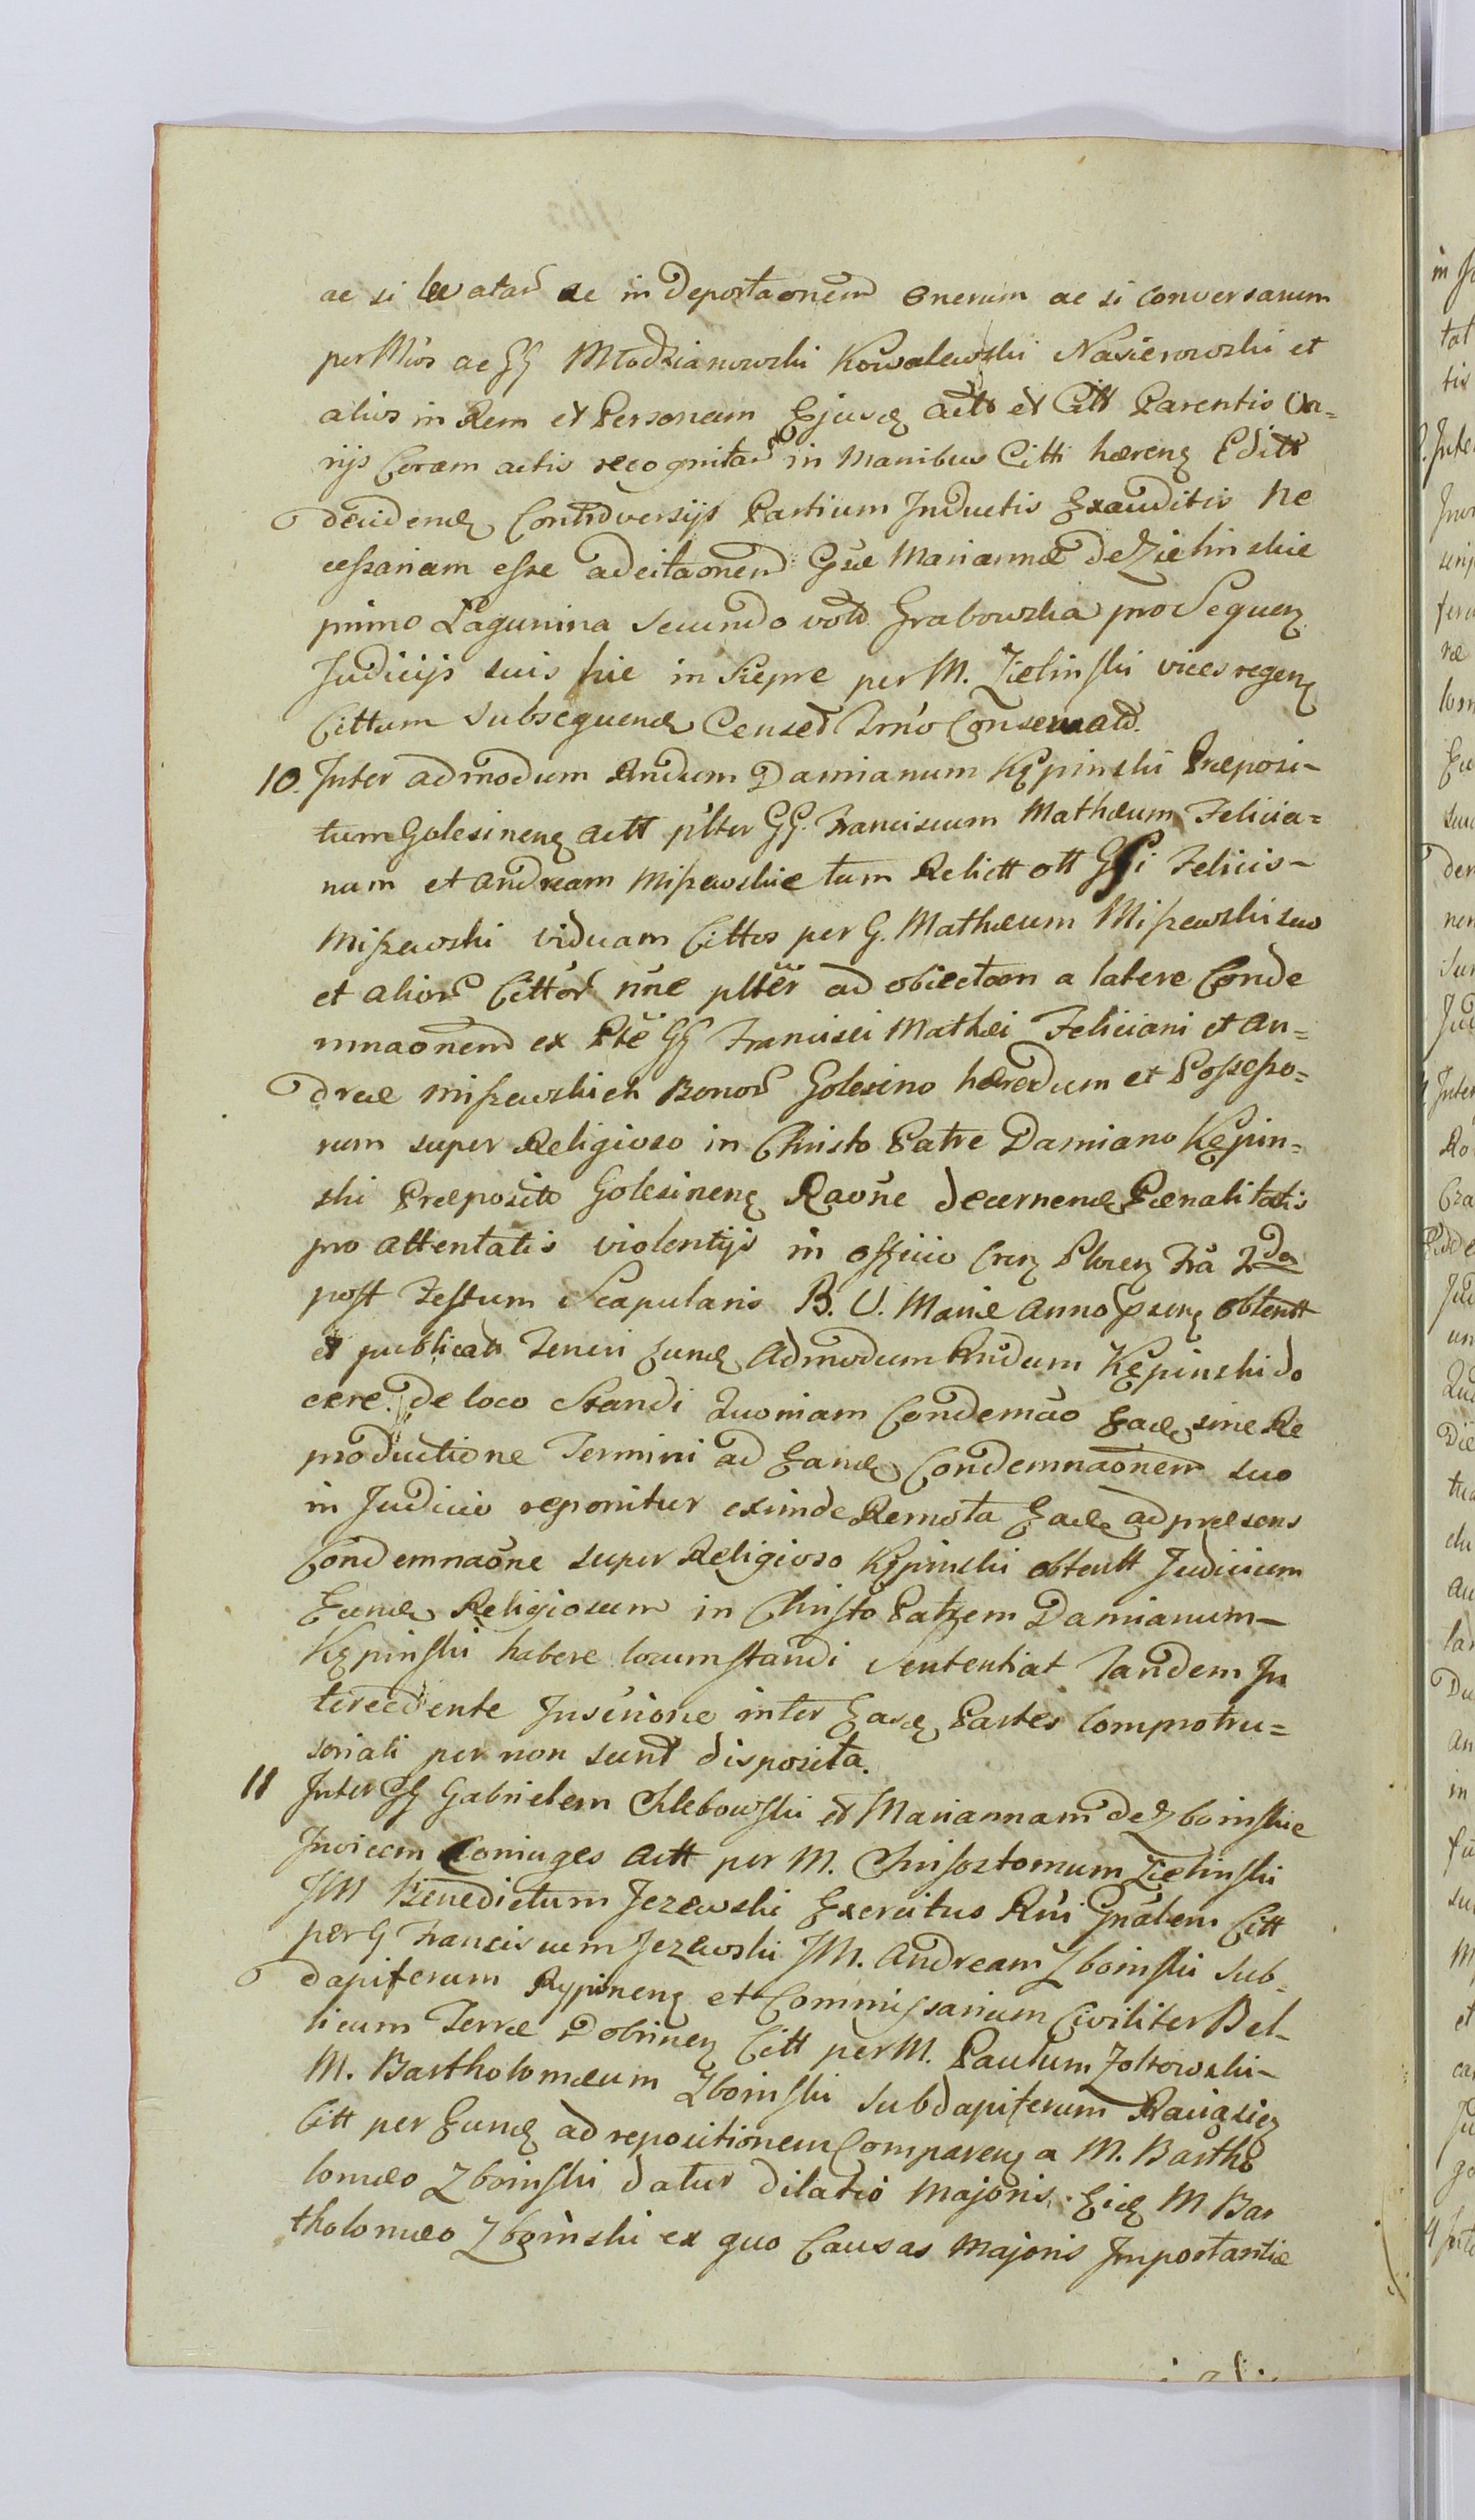 ac si levatar ac in deportaonem onerum ac si conversarum
per Mcos ac GG Młodzianowski Kowalewski Nasierowski et
alios in Rem et Personam Ejusd actt et Citt Parentis On=
rijs Coram actis recognitar in Manibus Citti hæren Editt
decidend Controversijs Partium Inductis Exauditis Ne
cessariam esse adcitaonem Gsæ Mariannæ de Zielinskie
primo Łagunina secundo voto Grabowska pro Sequen
Judicijs suis hic in Siepre per M. Zielinski vices regen
Cittum subsequend Censet Trno Conservato.
10. Inter admodum Rndum Damianum Kępinski Præposi-
tum Golesinen actt plter GG. Franciscum Mathæum Felicia=
num et Andream Miszewskie tum Relictt ott Gsi Felicis-
Miszewski viduam Cittos per G. Mathæum Miszewski suo
et alior Cittor nne plter ad obiectaon a latere Conde
mnaonem ex Pte GG Francisci Mathæi Feliciani et An=
dreæ Miszewskich Bonor Golesino hæredum et Possesso=
rum super Religioso in Christo Patre Damiano Kępin=
ski Præposito Golesinen Raone decernend Pænalitatis
pro attentatis violentijs in officio Cren Plocen Fra 2da
post Festum Scapularis B. V. Mariæ Anno præsen obtentt
et publicatt Teneri Eund Admodum Rndum Kępinski do
cere de loco Standi Quoniam Condemnao Ead sine Re
productione Termini ad Eand Condemnaonem suo
in Judicio reponitur exinde Remota Ead ad præsens
Condemnaone super Religioso Kępinski obtentt Judicium
Eund Religiosum in Christo Patrem Damianum-
Kępinski habere locum standi Sententiat Tandem In
tercedente Inscrione inter Easd Partes Comprotru=
soriali per non sunt disposita.
11 Inter GG Gabrielem Chlebowski et Mariannam de Zboinskie
Invicem Coniuges actt per M. Chrisostomum Zielinski
JM Benedictum Jezewski Exercitus Rni Gnalem Citt
per G Franciscum Jezewski JM. Andream Zboinski Sub=
dapiferum Rypinen et Commissarium Civiliter Bel-
licum Terræ Dobrinen Citt per M. Paulum Zołtowski-
M. Bartholomæum Zboinski Subdapiferum Raciązien
Citt per Eund ad repositionem Comparen a M. Bartho
lomæo Zboinski datur dilatio Majoris Eid M Bar
tholomæo Zboinski ex quo Causas Majoris Importantiæ